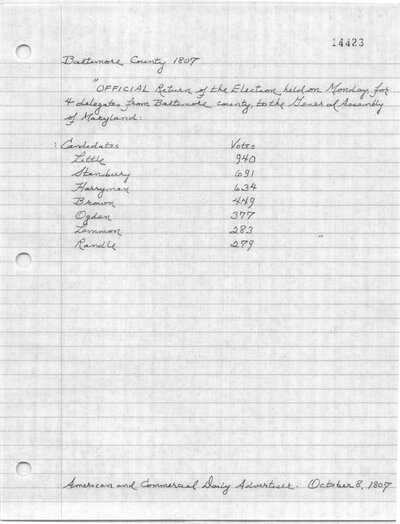 14423
Baltimore County 1807
"OFFICIAL Return of the Election held on Monday for
4 delegates from Baltimore county, to the General Assembly
of Maryland:
Candidates Votes
Little 940
Stansbury 691
Harryman 634
Brown 449
Ogden 377
Lemmon 283
Randle 279 "
American and Commercial Daily Advertiser. October 8, 1807